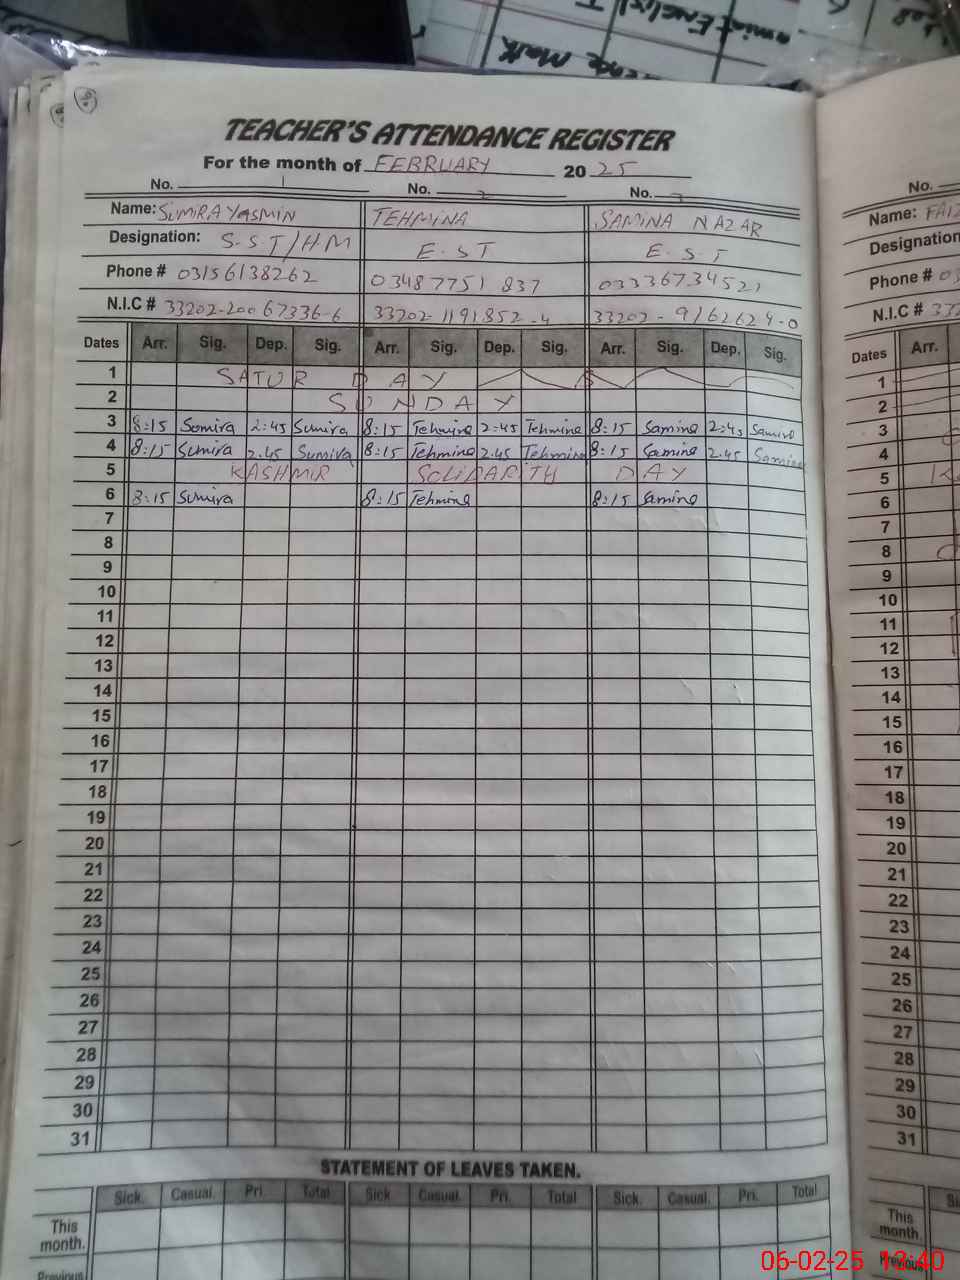 TEACHER'S ATTENDANCE REGISTER
For the month of FEBRUARY 2025
No. 1 No. 2 No. 3
Name: SUMIRA YASMIN TEHMINA SAMINA NAZAR
Designation: S.S.T/HM E.S.T E.S.T
Phone # 03156138262 03487751837 03336734521
N.I.C # 33202-20067336-6 33202-1191852-4 33202-9162624-0
Dates Arr. Sig. Dep. Sig. Arr. Sig. Dep. Sig. Arr. Sig. Dep. Sig.
1 SATURDAY
2 SUNDAY
3 8:15 Sumira 2:45 Sumira 8:15 Tehmina 2:45 Tehmina 8:15 Samina 2:45 Samina
4 8:15 Sumira 2.45 Sumira 8:15 Tehmina 2.45 Tehmina 8:15 Samina 2.45 Samina
5 KASHMIR SOLIDARITH DAY
6 8:15 Sumira 8:15 Tehmina 8:15 Samina
7
8
9
10
11
12
13
14
15
16
17
18
19
20
21
22
23
24
25
26
27
28
29
30
31
STATEMENT OF LEAVES TAKEN.
Sick. Casual. Pri. Total Sick Casual. Pri. Total Sick. Casual. Pri. Total
This month.
Previous
No.
Name: FAIZ
Designation
Phone # 03
N.I.C # 332
Dates Arr.
1
2
3
4
5
6
7
8
9
10
11
12
13
14
15
16
17
18
19
20
21
22
23
24
25
26
27
28
29
30
31
This month.
Previous
06-02-25 12:40